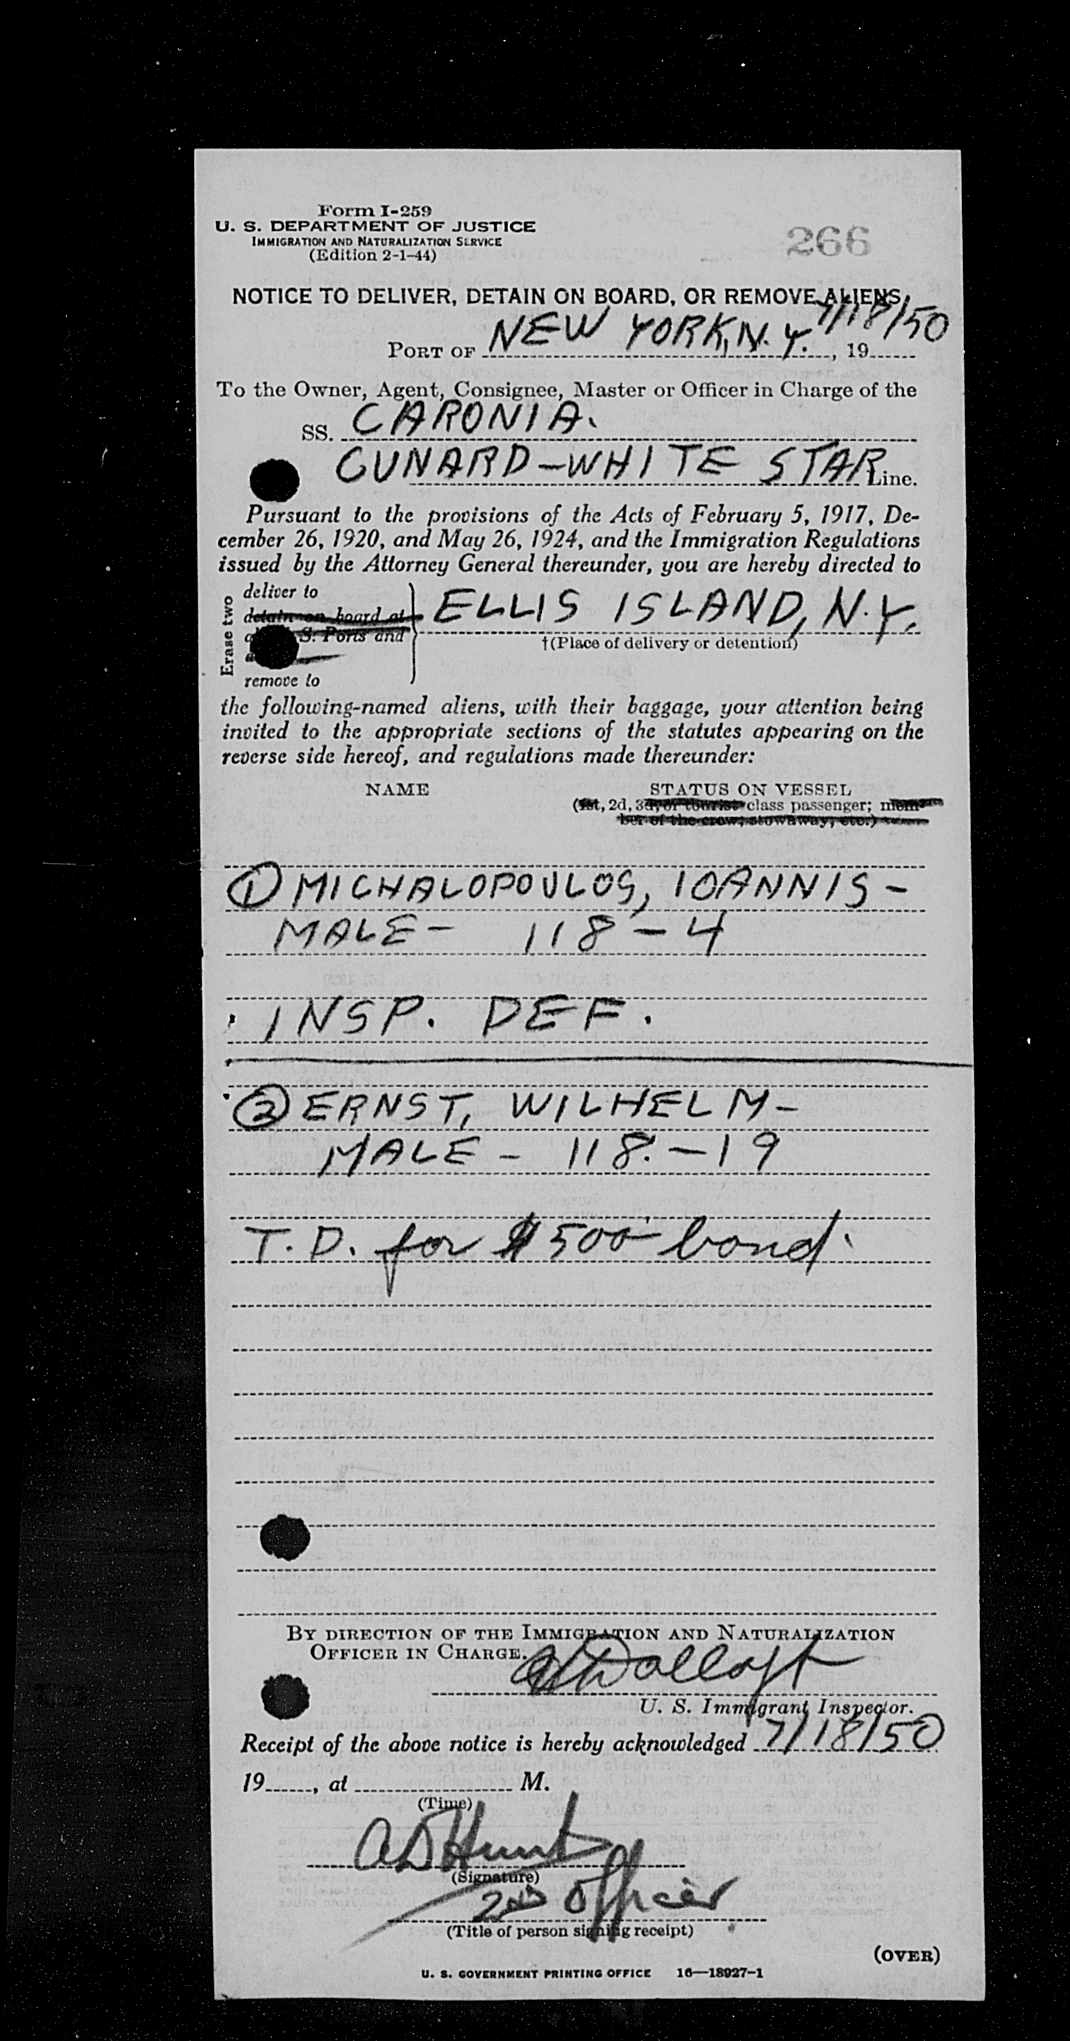 Form I-259
U. S. DEPARTMENT OF JUSTICE
IMMIGRATION AND NATURALIZATION SERVICE
(Edition 2-1-44)
266
NOTICE TO DELIVER, DETAIN ON BOARD, OR REMOVE ALIENS
7/18/50
PORT OF NEW YORK, N.Y. , 19
To the Owner, Agent, Consignee, Master or Officer in Charge of the
SS. CARONIA.
CUNARD-WHITE STAR Line.
Pursuant to the provisions of the Acts of February 5, 1917, De-
cember 26, 1920, and May 26, 1924, and the Immigration Regulations
issued by the Attorney General thereunder, you are hereby directed to
Erase two
deliver to
detain on board at
S. Ports and
remove to
ELLIS ISLAND, N.Y.
†(Place of delivery or detention)
the following-named aliens, with their baggage, your attention being
invited to the appropriate sections of the statutes appearing on the
reverse side hereof, and regulations made thereunder:
NAME STATUS ON VESSEL
(1st, 2d, 3d, or tourist class passenger; mem-
ber of the crew; stowaway, etc.)
① MICHALOPOULOS, IOANNIS -
MALE - 118 - 4
INSP. DEF.
② ERNST, WILHELM -
MALE - 118. - 19
T.D. for $500 bond.
BY DIRECTION OF THE IMMIGRATION AND NATURALIZATION
OFFICER IN CHARGE.
U. S. Immigrant Inspector.
Receipt of the above notice is hereby acknowledged 7/18/50
19 , at M.
(Time)
A D Hunt
(Signature)
2ND Officer
(Title of person signing receipt)
(OVER)
U. S. GOVERNMENT PRINTING OFFICE 16—18927-1